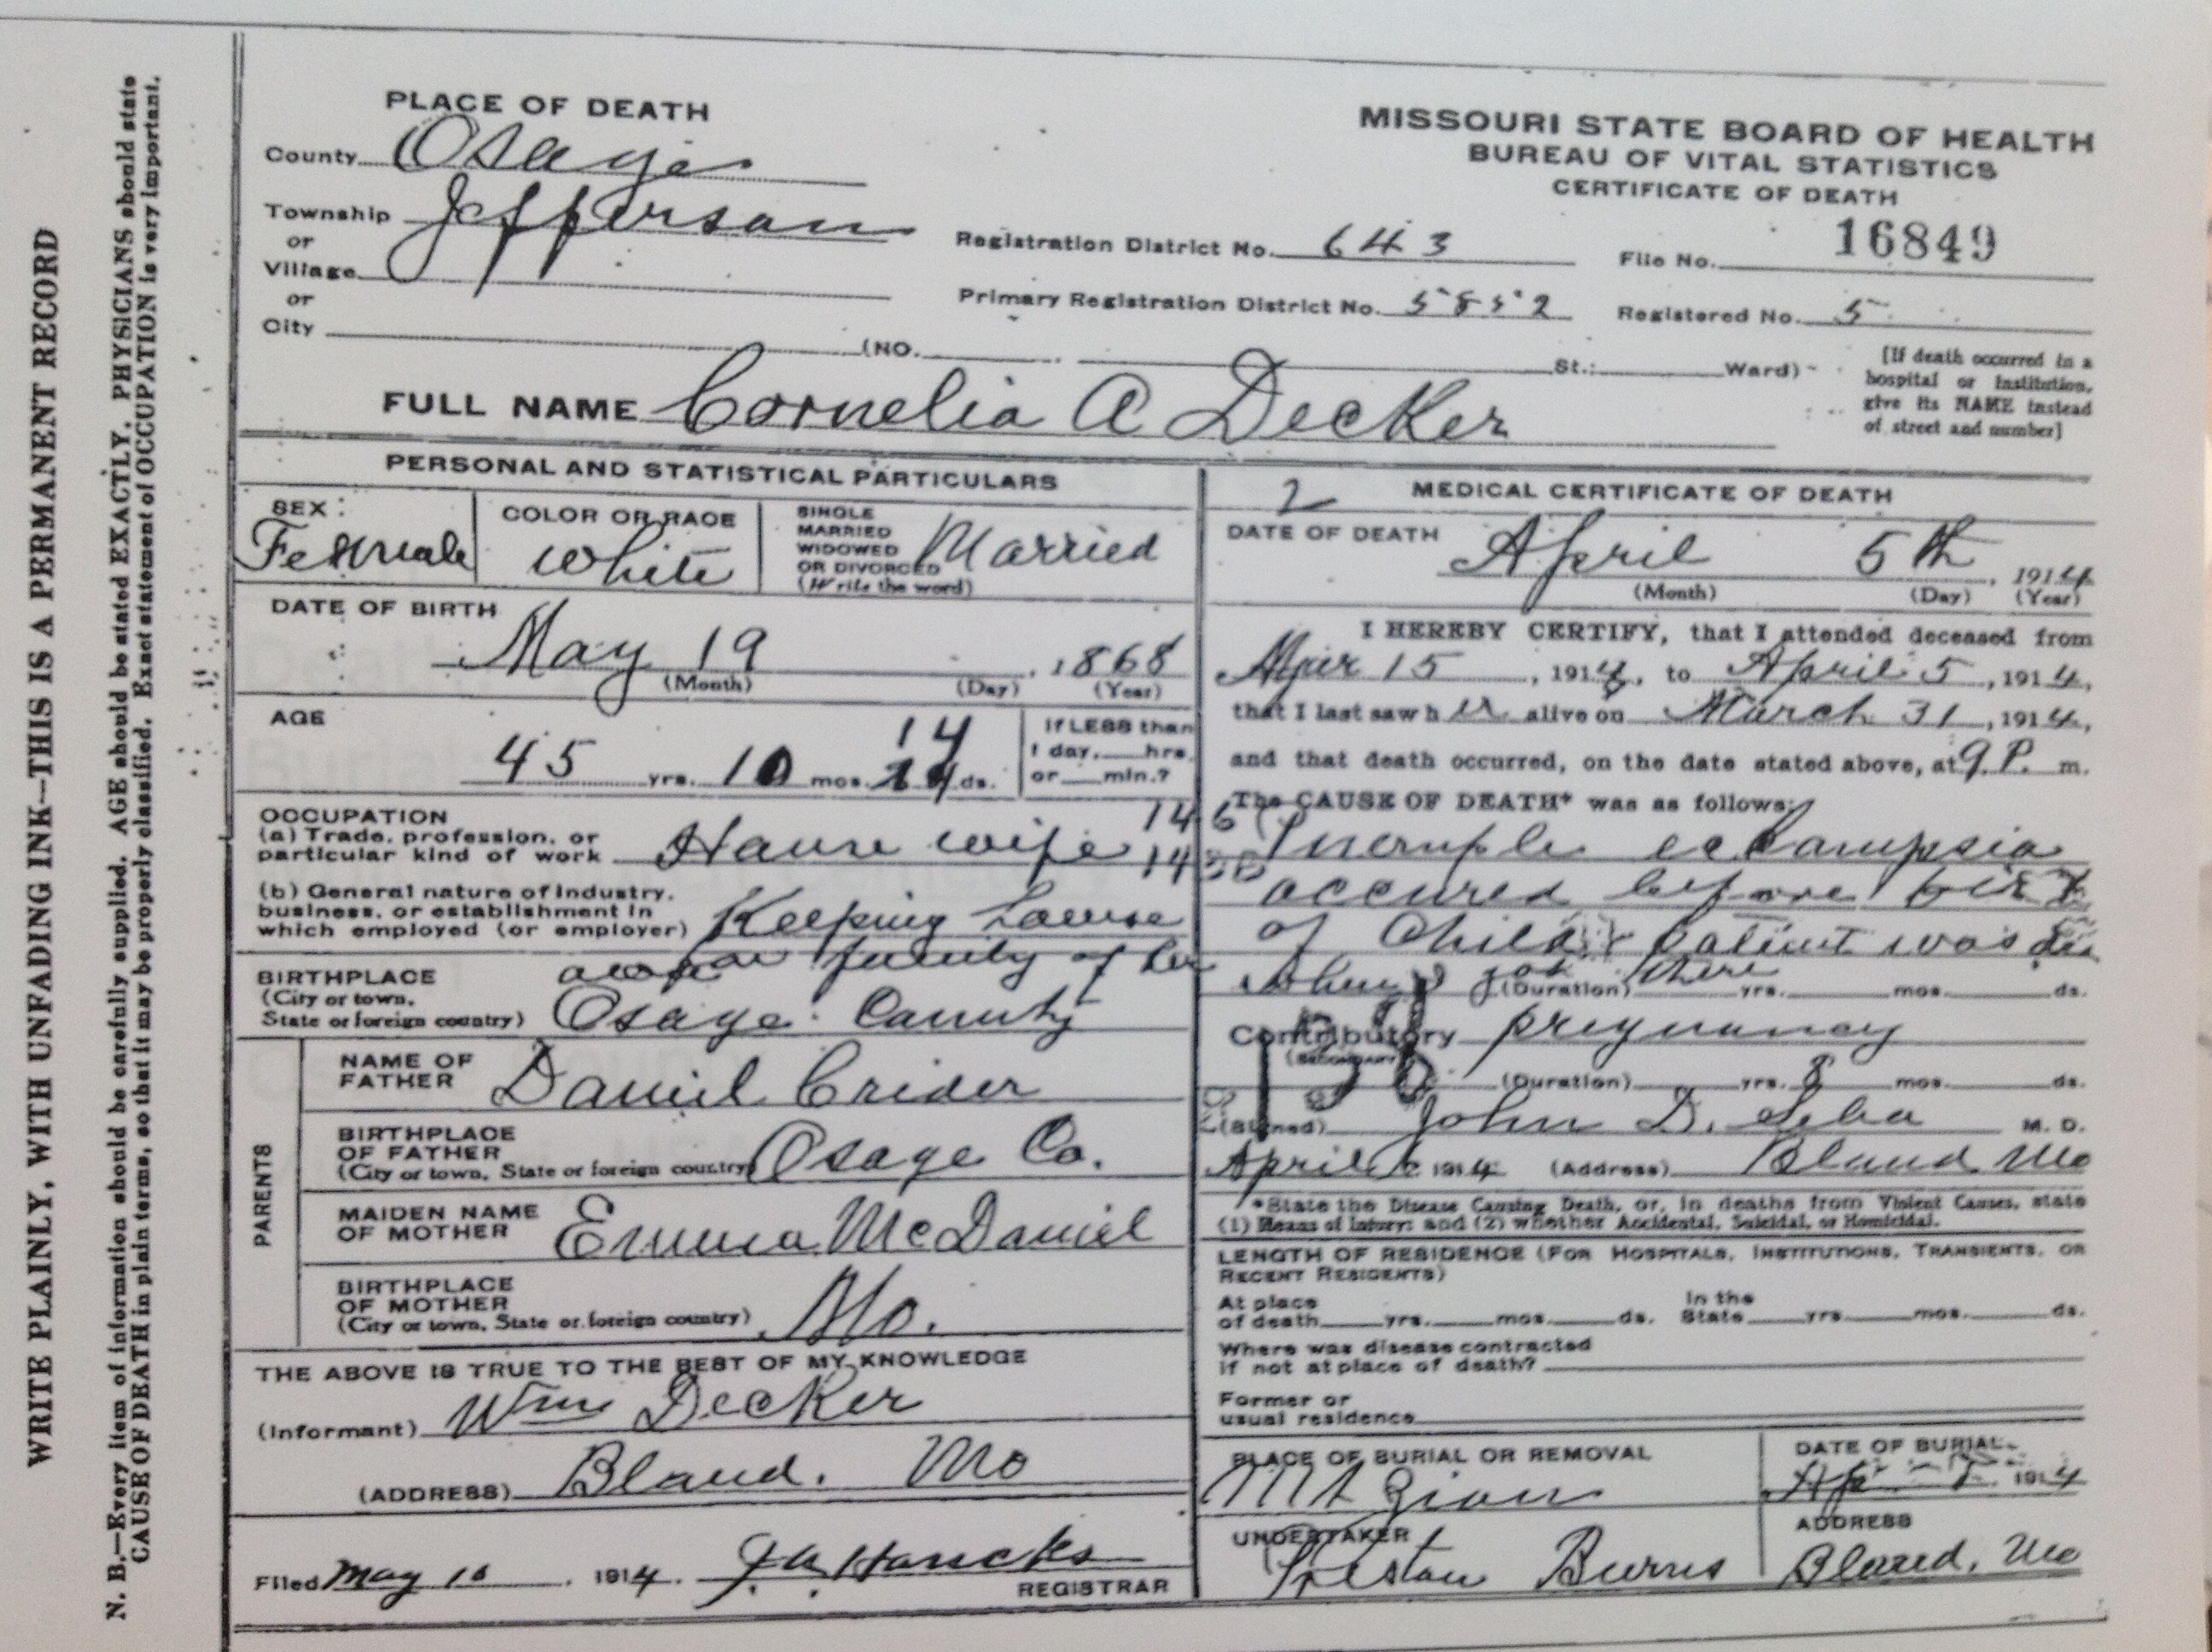 WRITE PLAINLY, WITH UNFADING INK—THIS IS A PERMANENT RECORD
N. B.—Every item of information should be carefully supplied. AGE should be stated EXACTLY. PHYSICIANS should state
CAUSE OF DEATH in plain terms, so that it may be properly classified. Exact statement of OCCUPATION is very important.
PLACE OF DEATH
County Osage
Township Jefferson
or
Village
or
City (NO. St.; Ward)
MISSOURI STATE BOARD OF HEALTH
BUREAU OF VITAL STATISTICS
CERTIFICATE OF DEATH
Registration District No. 643 File No. 16849
Primary Registration District No. 5852 Registered No. 5
[If death occurred in a
hospital or institution,
give its NAME instead
of street and number]
FULL NAME Cornelia A Decker
PERSONAL AND STATISTICAL PARTICULARS
SEX: Female
COLOR OR RACE White
SINGLE
MARRIED
WIDOWED
OR DIVORCED
(Write the word)
Married
DATE OF BIRTH
May 19, 1868
(Month) (Day) (Year)
AGE
14
45 yrs. 10 mos. ds.
If LESS than
1 day, hrs.
or min.?
OCCUPATION
(a) Trade, profession, or
particular kind of work House wife
(b) General nature of industry,
business, or establishment in
which employed (or employer) Keeping house
family of her
BIRTHPLACE
(City or town,
State or foreign country) Osage County
PARENTS
NAME OF
FATHER Daniel Crider
BIRTHPLACE
OF FATHER
(City or town, State or foreign country) Osage Co.
MAIDEN NAME
OF MOTHER Emma McDaniel
BIRTHPLACE
OF MOTHER
(City or town, State or foreign country) Mo.
THE ABOVE IS TRUE TO THE BEST OF MY KNOWLEDGE
(Informant) Wm Decker
(ADDRESS) Bland. Mo
Filed May 10, 1914. REGISTRAR
2 MEDICAL CERTIFICATE OF DEATH
DATE OF DEATH April 5th, 1914
(Month) (Day) (Year)
I HEREBY CERTIFY, that I attended deceased from
Mar 15, 1914, to April 5, 1914,
that I last saw h er alive on March 31, 1914,
and that death occurred, on the date stated above, at 9 P. m.
The CAUSE OF DEATH* was as follows:
eclampsia
occured before birth
of Child Patient was
when I got there
(Duration) yrs. mos. ds.
Contributory pregnancy
(SECONDARY)
(Duration) yrs. 8 mos. ds.
(Signed) John D. Seba M. D.
April 1914 (Address) Bland Mo
*State the Disease Causing Death, or, in deaths from Violent Causes, state
(1) Means of Injury; and (2) whether Accidental, Suicidal, or Homicidal.
LENGTH OF RESIDENCE (FOR HOSPITALS, INSTITUTIONS, TRANSIENTS, OR
RECENT RESIDENTS)
At place
of death yrs. mos. ds.
In the
State yrs. mos. ds.
Where was disease contracted
if not at place of death?
Former or
usual residence
PLACE OF BURIAL OR REMOVAL
Mt Zion
DATE OF BURIAL
1914
UNDERTAKER
Preston Burns
ADDRESS
Bland, Mo